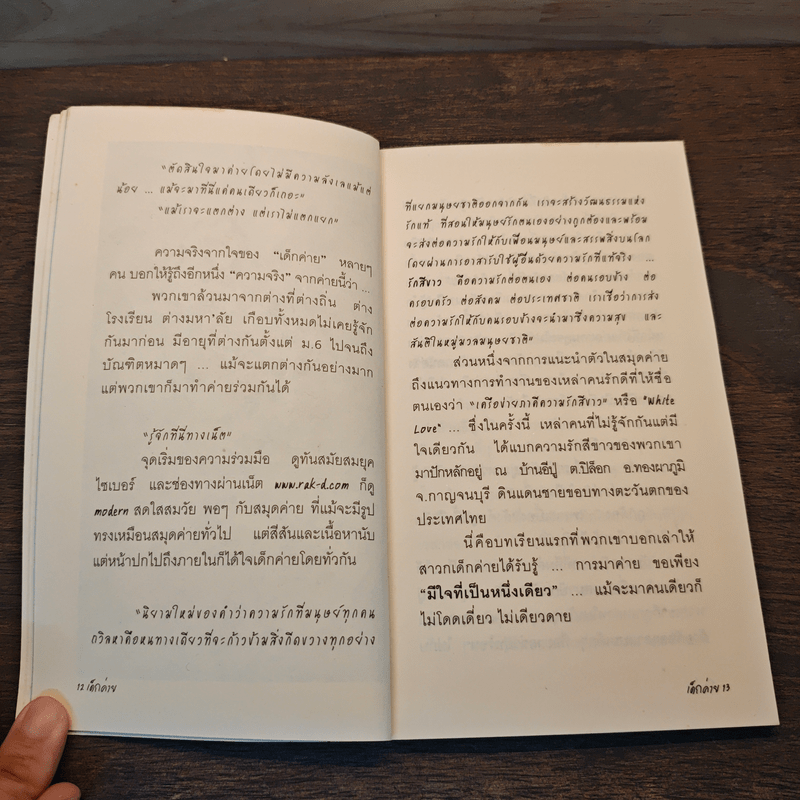 "ตัดสินใจมาค่ายโดยไม่มีความลังเลแม้แต่
น้อย ... แม้จะมาที่นี่แค่คนเดียวก็เถอะ"
"แม้เราจะแตกต่าง แต่เราไม่แตกแยก"
ความจริงจากใจของ "เด็กค่าย" หลายๆ
คน บอกให้รู้ถึงอีกหนึ่ง "ความจริง" จากค่ายนี้ว่า ...
พวกเขาล้วนมาจากต่างที่ต่างถิ่น ต่าง
โรงเรียน ต่างมหา'ลัย เกือบทั้งหมดไม่เคยรู้จัก
กันมาก่อน มีอายุที่ต่างกันตั้งแต่ ม.6 ไปจนถึง
บัณฑิตหมาดๆ ... แม้จะแตกต่างกันอย่างมาก
แต่พวกเขาก็มาทำค่ายร่วมกันได้
"รู้จักที่นี่ทางเน็ต"
จุดเริ่มของความร่วมมือ ดูทันสมัยสมยุค
ไซเบอร์ และช่องทางผ่านเน็ต www.rak-d.com ก็ดู
modern สดใสสมวัย พอๆ กับสมุดค่าย ที่แม้จะมีรูป
ทรงเหมือนสมุดค่ายทั่วไป แต่สีสันและเนื้อหานับ
แต่หน้าปกไปถึงภายในก็ได้ใจเด็กค่ายโดยทั่วกัน
"นิยามใหม่ของคำว่าความรักที่มนุษย์ทุกคน
ถวิลหาคือหนทางเดียวที่จะก้าวข้ามสิ่งกีดขวางทุกอย่าง
12 เด็กค่าย
ที่แยกมนุษยชาติออกจากกัน เราจะสร้างวัฒนธรรมแห่ง
รักแท้ ที่สอนให้มนุษย์รักตนเองอย่างถูกต้องและพร้อม
จะส่งต่อความรักให้กับเพื่อนมนุษย์และสรรพสิ่งบนโลก
โดยผ่านการอาสารับใช้ผู้อื่นด้วยความรักที่แท้จริง ...
รักสีขาว คือความรักต่อตนเอง ต่อคนรอบข้าง ต่อ
ครอบครัว ต่อสังคม ต่อประเทศชาติ เราเชื่อว่าการส่ง
ต่อความรักให้กับคนรอบข้างจะนำมาซึ่งความสุข และ
สันติในหมู่มวลมนุษยชาติ"
ส่วนหนึ่งจากการแนะนำตัวในสมุดค่าย
ถึงแนวทางการทำงานของเหล่าคนรักดีที่ให้ชื่อ
ตนเองว่า "เครือข่ายภาคีความรักสีขาว" หรือ "White
Love" ... ซึ่งในครั้งนี้ เหล่าคนที่ไม่รู้จักกันแต่มี
ใจเดียวกัน ได้แบกความรักสีขาวของพวกเขา
มาปักหลักอยู่ ณ บ้านอีปู่ ต.ปิล็อก อ.ทองผาภูมิ
จ.กาญจนบุรี ดินแดนชายขอบทางตะวันตกของ
ประเทศไทย
นี่คือบทเรียนแรกที่พวกเขาบอกเล่าให้
สาวกเด็กค่ายได้รับรู้ ... การมาค่าย ขอเพียง
"มีใจที่เป็นหนึ่งเดียว" ... แม้จะมาคนเดียวก็
ไม่โดดเดี่ยว ไม่เดียวดาย
เด็กค่าย 13